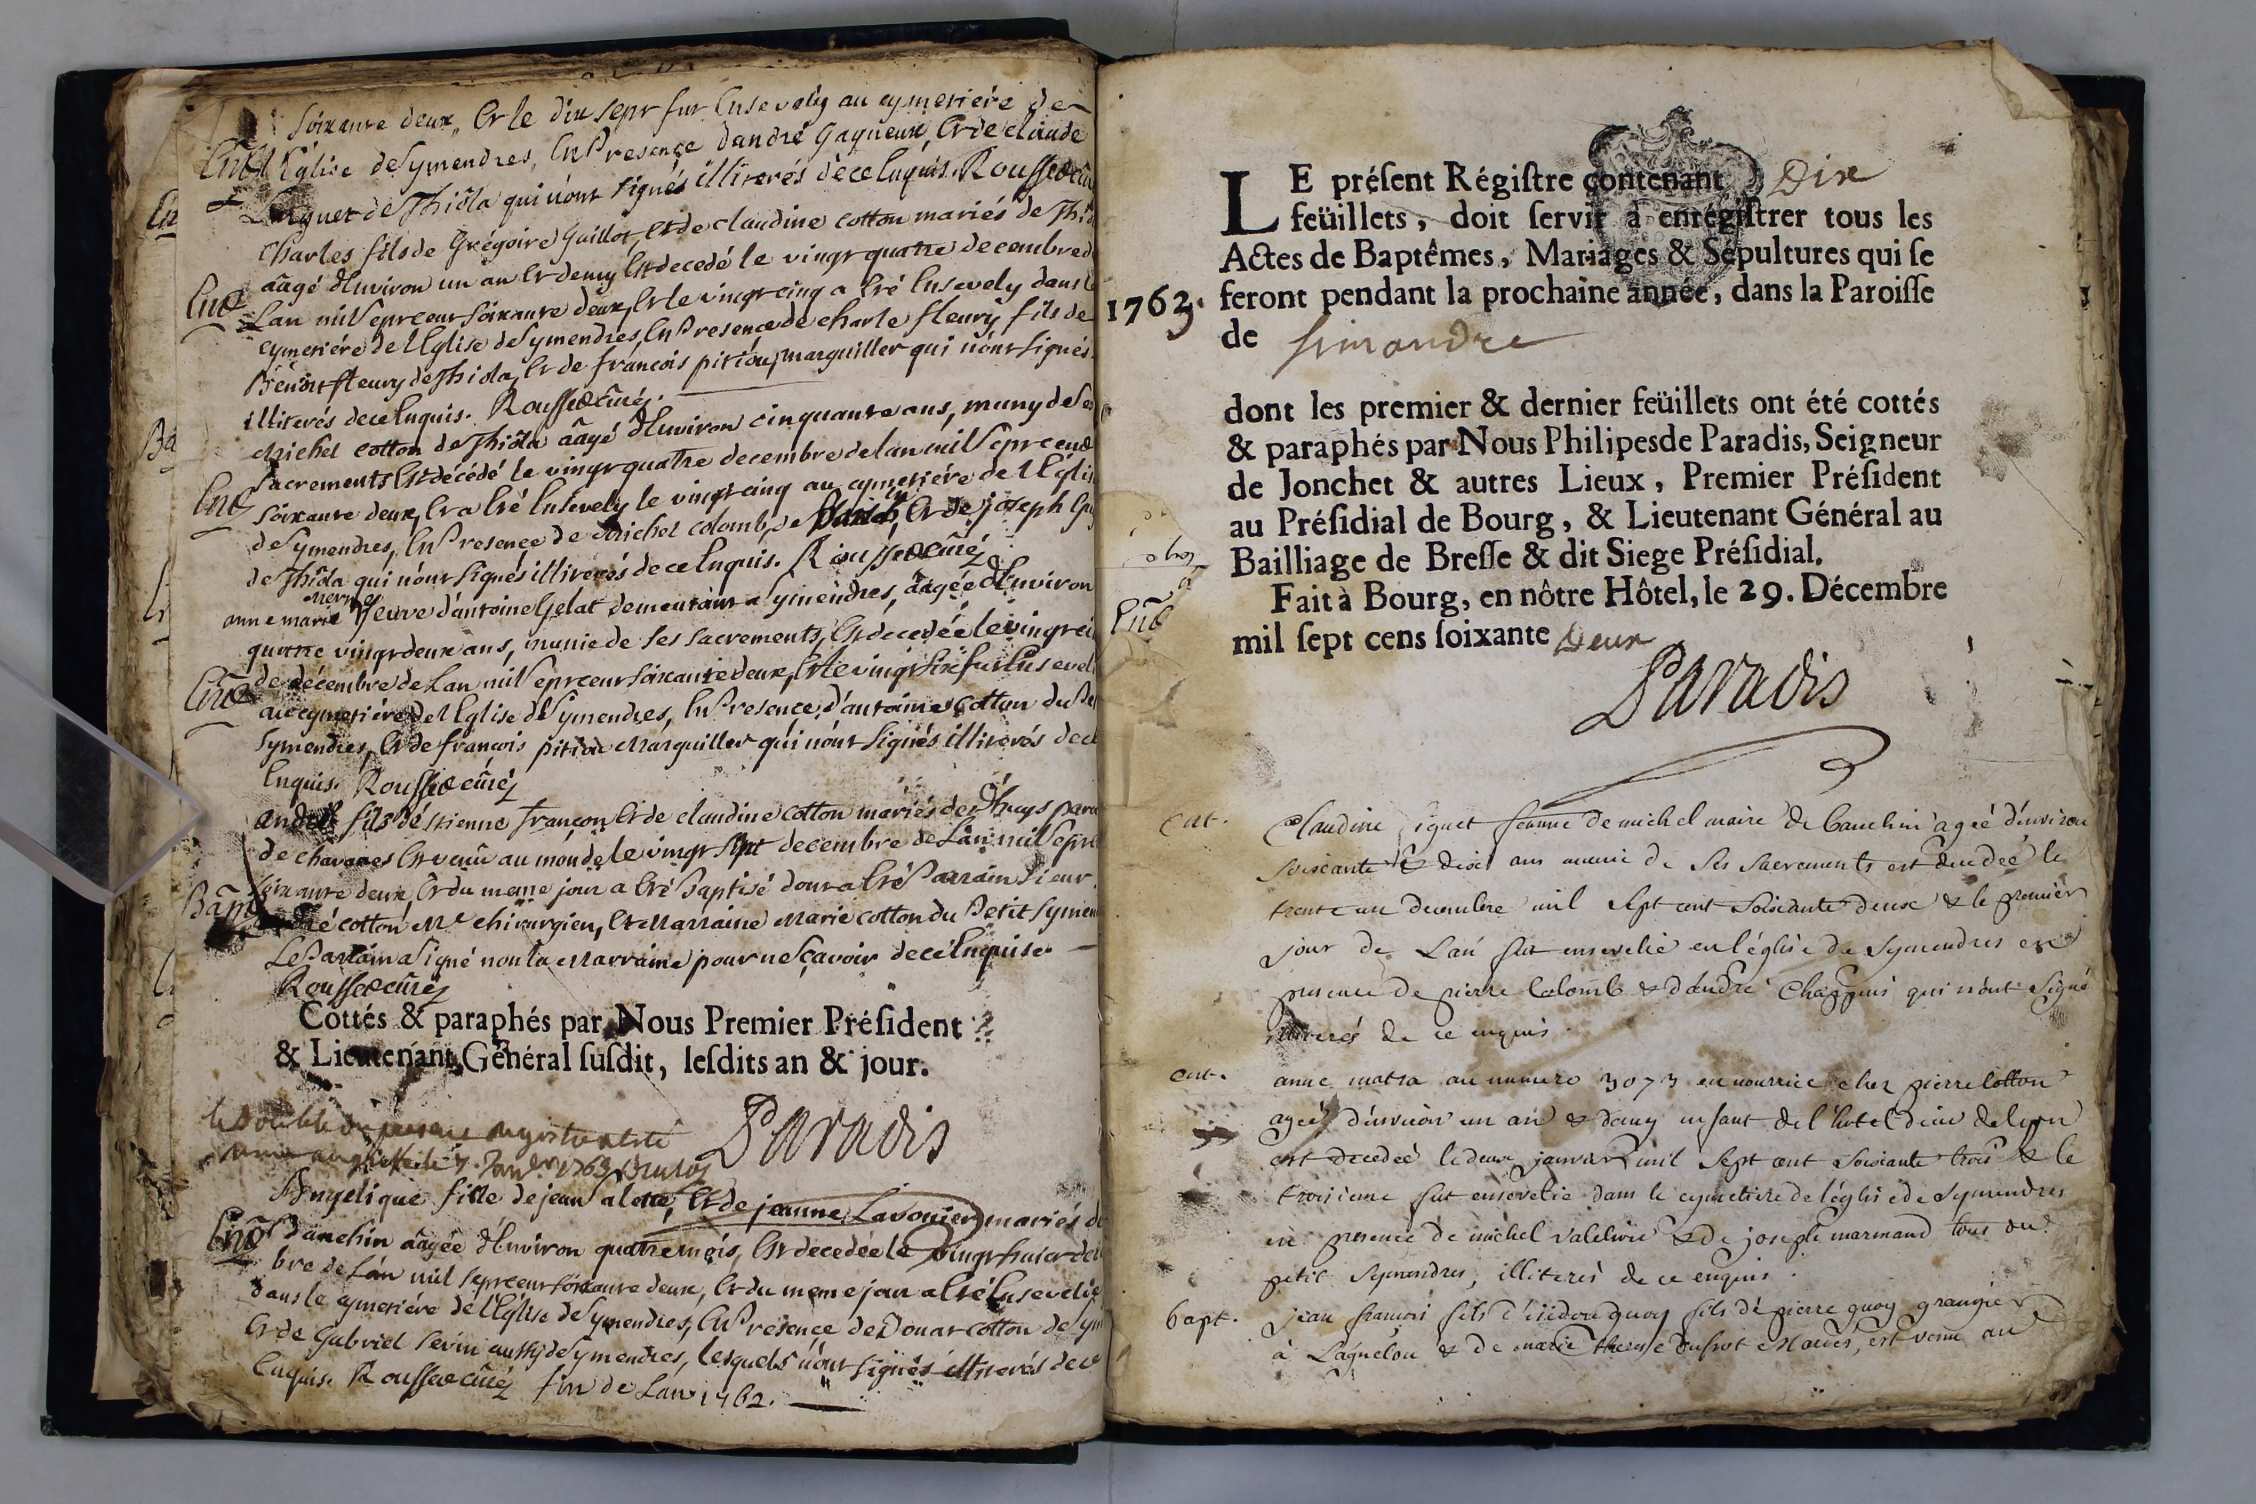 soixante deux, Et le dix sept fut Ensevely au cymetiére de
L'Eglise deSymendres, En Presence d'andré Gagneux, Et de claude
de Thiôla qui n'ont signés illiterés de ce Enquis. Roussedcuré
Ent
charles fils de Grégoire Guillot, et de claudine cotton mariés de
âagé d'Environ un an Et demy Est decedé le vingt quatre decembre d
Ent
Lan mil Sept cent soixante deux, Et le vingt cinq a Eté Ensevely dans
cymetiére de l'Eglise de Symendres, En Presence de charle fleury fils de
Benoit fleury de Thiola, Et de francois pitiou, marguiller qui n'ont signés
illiterés de ce Enquis. Roussedcuré.
Michel cotton de Thiôla âagé d'Environ cinquante ans, muny de
Sacrements Est décédé le vingt quatre decembre de lan mil Sept cent
Ent
soixante deux, Et a Eté Ensevely le vingt cinq au cymetiére de l'Eglise
de Symendres, En Presence de Michel colomb, Et de joseph
de Thiôla qui n'ont signés illiterés de ce Enquis. Roussedcuré
anne marie Veuve d'antoine Gelat demeurant a Symendres, âagée d'Environ
quatre vingt deux ans, munie de ses sacrements, Est decedée le vingt
de décembre de Lan mil Sept cent soixante deux, Et le vingt six fut Ensevel
Ent
au cymetiére de l'Eglise de Symendres, En Presence, d'antoine cotton du
Symendres, Et de françois pitiou Marguiller qui n'ont signés illiterés de ce
Enquis. Roussedcuré
andré fils d'Estienne françon, Et de claudine cotton mariés de
de chavanes Est venu au monde le vingt sept decembre de Lan mil Sept
soixante deux, Et du meme jour a Eté Baptisé dont a Eté Parrain Sieur
Bapt
cotton Me chirurgien, Et Marraine Marie cotton du Petit Symen
Le Parrain a signé non la Marraine pour ne sçavoir de ce Enquise
Roussedcuré
Cottés & paraphés par Nous Premier Préſident
& Lieutenant Général ſuſdit, leſdits an & jour.
Paradis
le double du present registre a été
1763
Angelique fille de jean, Et de jeanne Lavonier mariés
Ent
Danchin âagée d'Environ quatre mois, Est decedée le vingt huict
bre de Lan mil sept cent soixante deux, Et du meme jour a Eté Ensevelie
dans le cymetiére de l'Eglise de Symendres, En Presence de Donat cotton de
Et de Gabriel Sevin aussy de Symendres, lesquels n'ont signés illiterés de ce
Enquis. Roussedcuré fin de Lan 1762.
LE préſent Régiſtre contenant Dix
feüillets, doit ſervir à enrégiſtrer tous les
Actes de Baptêmes, Mariages & Sépultures qui ſe
1763. feront pendant la prochaine année, dans la Paroiſſe
de simandre
dont les premier & dernier feüillets ont été cottés
& paraphés par Nous Philipes de Paradis, Seigneur
de Jonchet & autres Lieux, Premier Préſident
au Préſidial de Bourg, & Lieutenant Général au
Bailliage de Breſſe & dit Siege Préſidial.
Fait à Bourg, en nôtre Hôtel, le 29. Décembre
mil ſept cens ſoixante Deux
Paradis
Ent. Claudine femme de michel maire de banchin ageé d'environ
soixante & dix ans munie de ses sacrements est decedeé le
trente un decembre mil sept cent soixante deux & le premier
jour de Lan fut ensevelie en l'église de Symendres en
presence de pierre Colomb & d'andré Chappuis qui n'ont signé
illiterés de ce enquis
ent. anne matra au numero 3073 en nourrice chez pierre Cotton
ageé d'environ un an & demy enfant de l'hotel dieu de lyon
est decedeé le deux janvier mil sept cent soixante trois & le
troisieme fut ensevelie dans le cymetiere de l'église de Symendres
en presence de michel & de joseph marmand tous du
petit Symendres, illiterés de ce enquis.
bapt. jean francois fils d'isidore quoy fils de pierre quoy granger
à & de marie therese Dufrot Mariés, est venu au